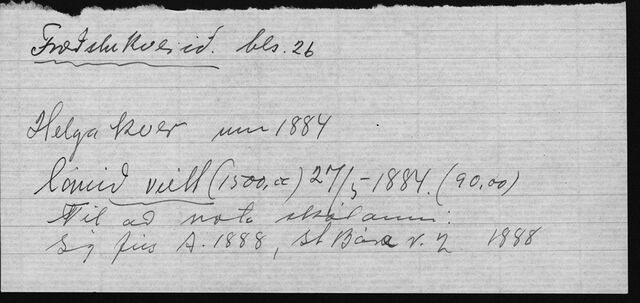 Fræðslukverið. bls. 26
Helgakver um 1884
lánið veitt (1500,00) 27/5-1884. (90,00)
Til að nota
Sig fus A. 1888, St Bára v. 2 1888